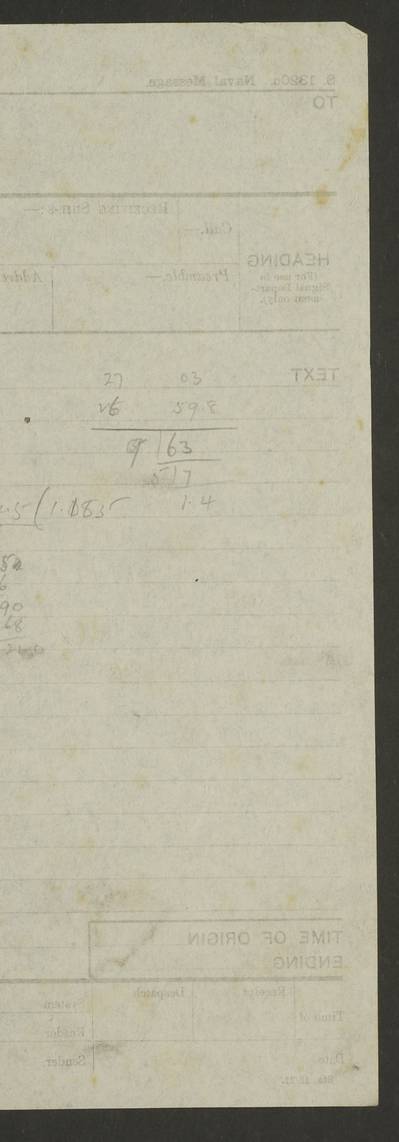 S. 1320d. Naval Message.
TO
RECEIVING SHIPS:—
Call.—
HEADING
(For use in
Signal Depart-
ment only).
Preamble.—
Addre
TEXT
27 03
26 59.8
9 | 63
5 | 7
.5(1.1835 1.4
6
90
68
TIME OF ORIGIN
ENDING
Receipt
Despatch
System
Time of
Reader
Date
Sender